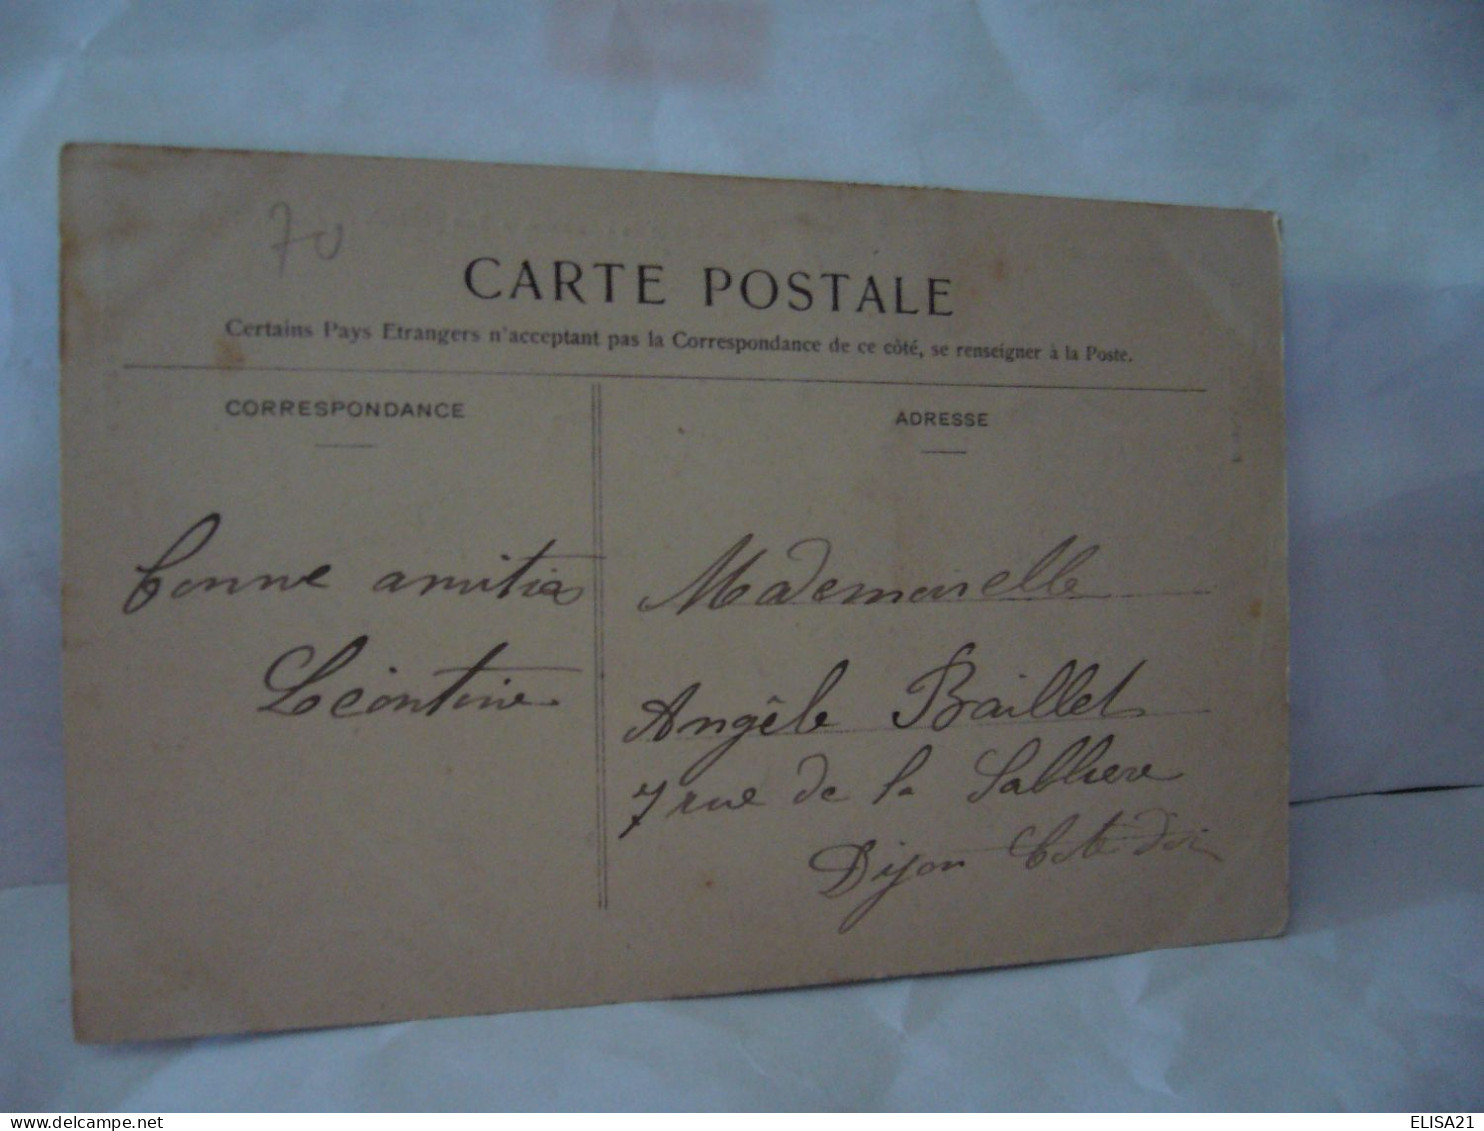 70
CARTE POSTALE
Certains Pays Etrangers n'acceptant pas la Correspondance de ce côté, se renseigner à la Poste.
CORRESPONDANCE
bonne amitiés
Léontine
ADRESSE
Mademoiselle
Angèle Baillet
7 rue de la Sablière
Dijon Cote d'or
ELISA21